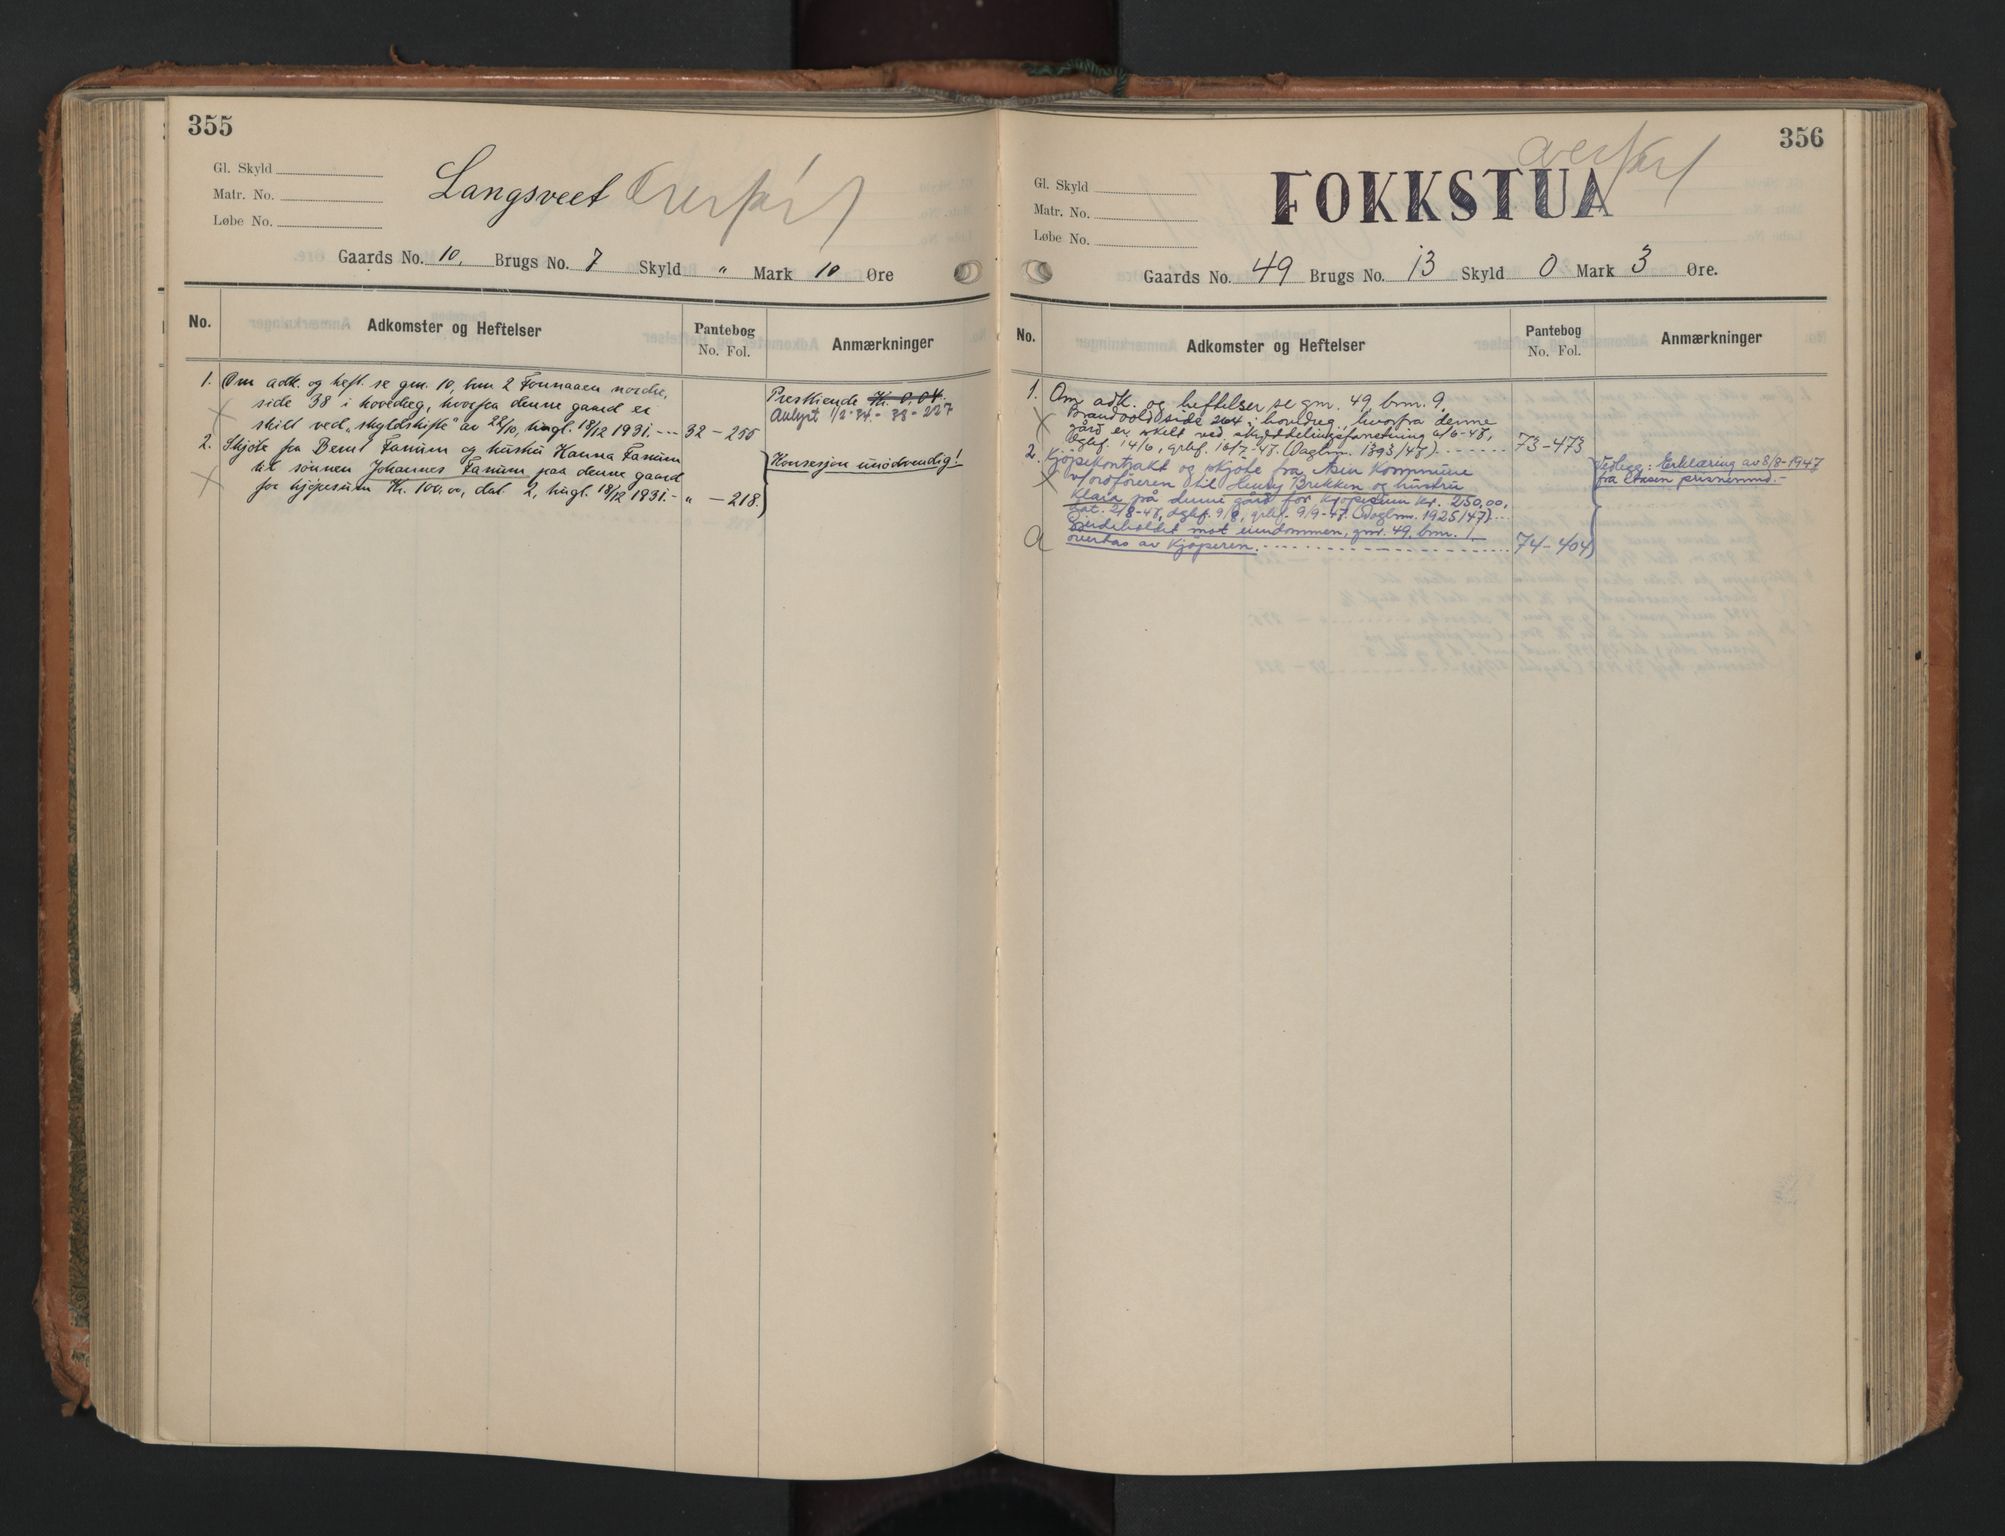 355
Gl. Skyld
Matr. No.
Løbe No.
Langsveet Overført
Gaards No. 10, Brugs No. 7 Skyld " Mark 10 Øre
No. Adkomster og Heftelser Pantebog No. Fol. Anmærkninger
1. Om adk. og heft. se gnr. 10, bnr 2 Fornaaen nordre,
side 38 i hovedreg, hvorfra denne gaard er
skilt ved "skyldskifte" av 22/10, tingl. 18/12 1931. -- 32 - 255
Presttiende Kr. 0,04.
Avlyst 1/2-34 - 33 - 227
2. Skjøte fra Bernt Fanum og hustru Hanna Fanum
til sønnen Johannes Fanum paa denne gaard
for kjøpesum Kr. 100,00, dat 2, tingl. 18/12 1931. - " - 218.
Konsesjon unødvendig!
356
Gl. Skyld
Matr. No.
Løbe No.
FOKKSTUA
Overført
Gaards No. 49 Brugs No. 13 Skyld 0 Mark 3 Øre.
No. Adkomster og Heftelser Pantebog No. Fol. Anmærkninger
1. Om adk. og heftelser se gnr. 49 bnr. 9,
Brandvold side 264 i hovedreg., hvorfra denne
gård er skilt ved skylddelingsforretning 6/6-47,
dglf. 14/6, grbf. 16/7-47. (Dagbnr. 1393/47) 73-473
2. Kjøpekontrakt og skjøte fra Åsen Kommune
v/ordføreren til Henry Brekken og hustru
Klara på denne gård for kjøpesum kr. 250,00,
dat. 2/8-47, dglf. 9/8, grbf. 9/9-47. (Dagbnr. 1925/47).
Gjerdeholdet mot eiendommen, gnr. 49, bnr. 1
a overtas av kjøperen. 74-404
Vedlegg: Erklæring av 8/8-1947
fra Åsen prisnemnd.-